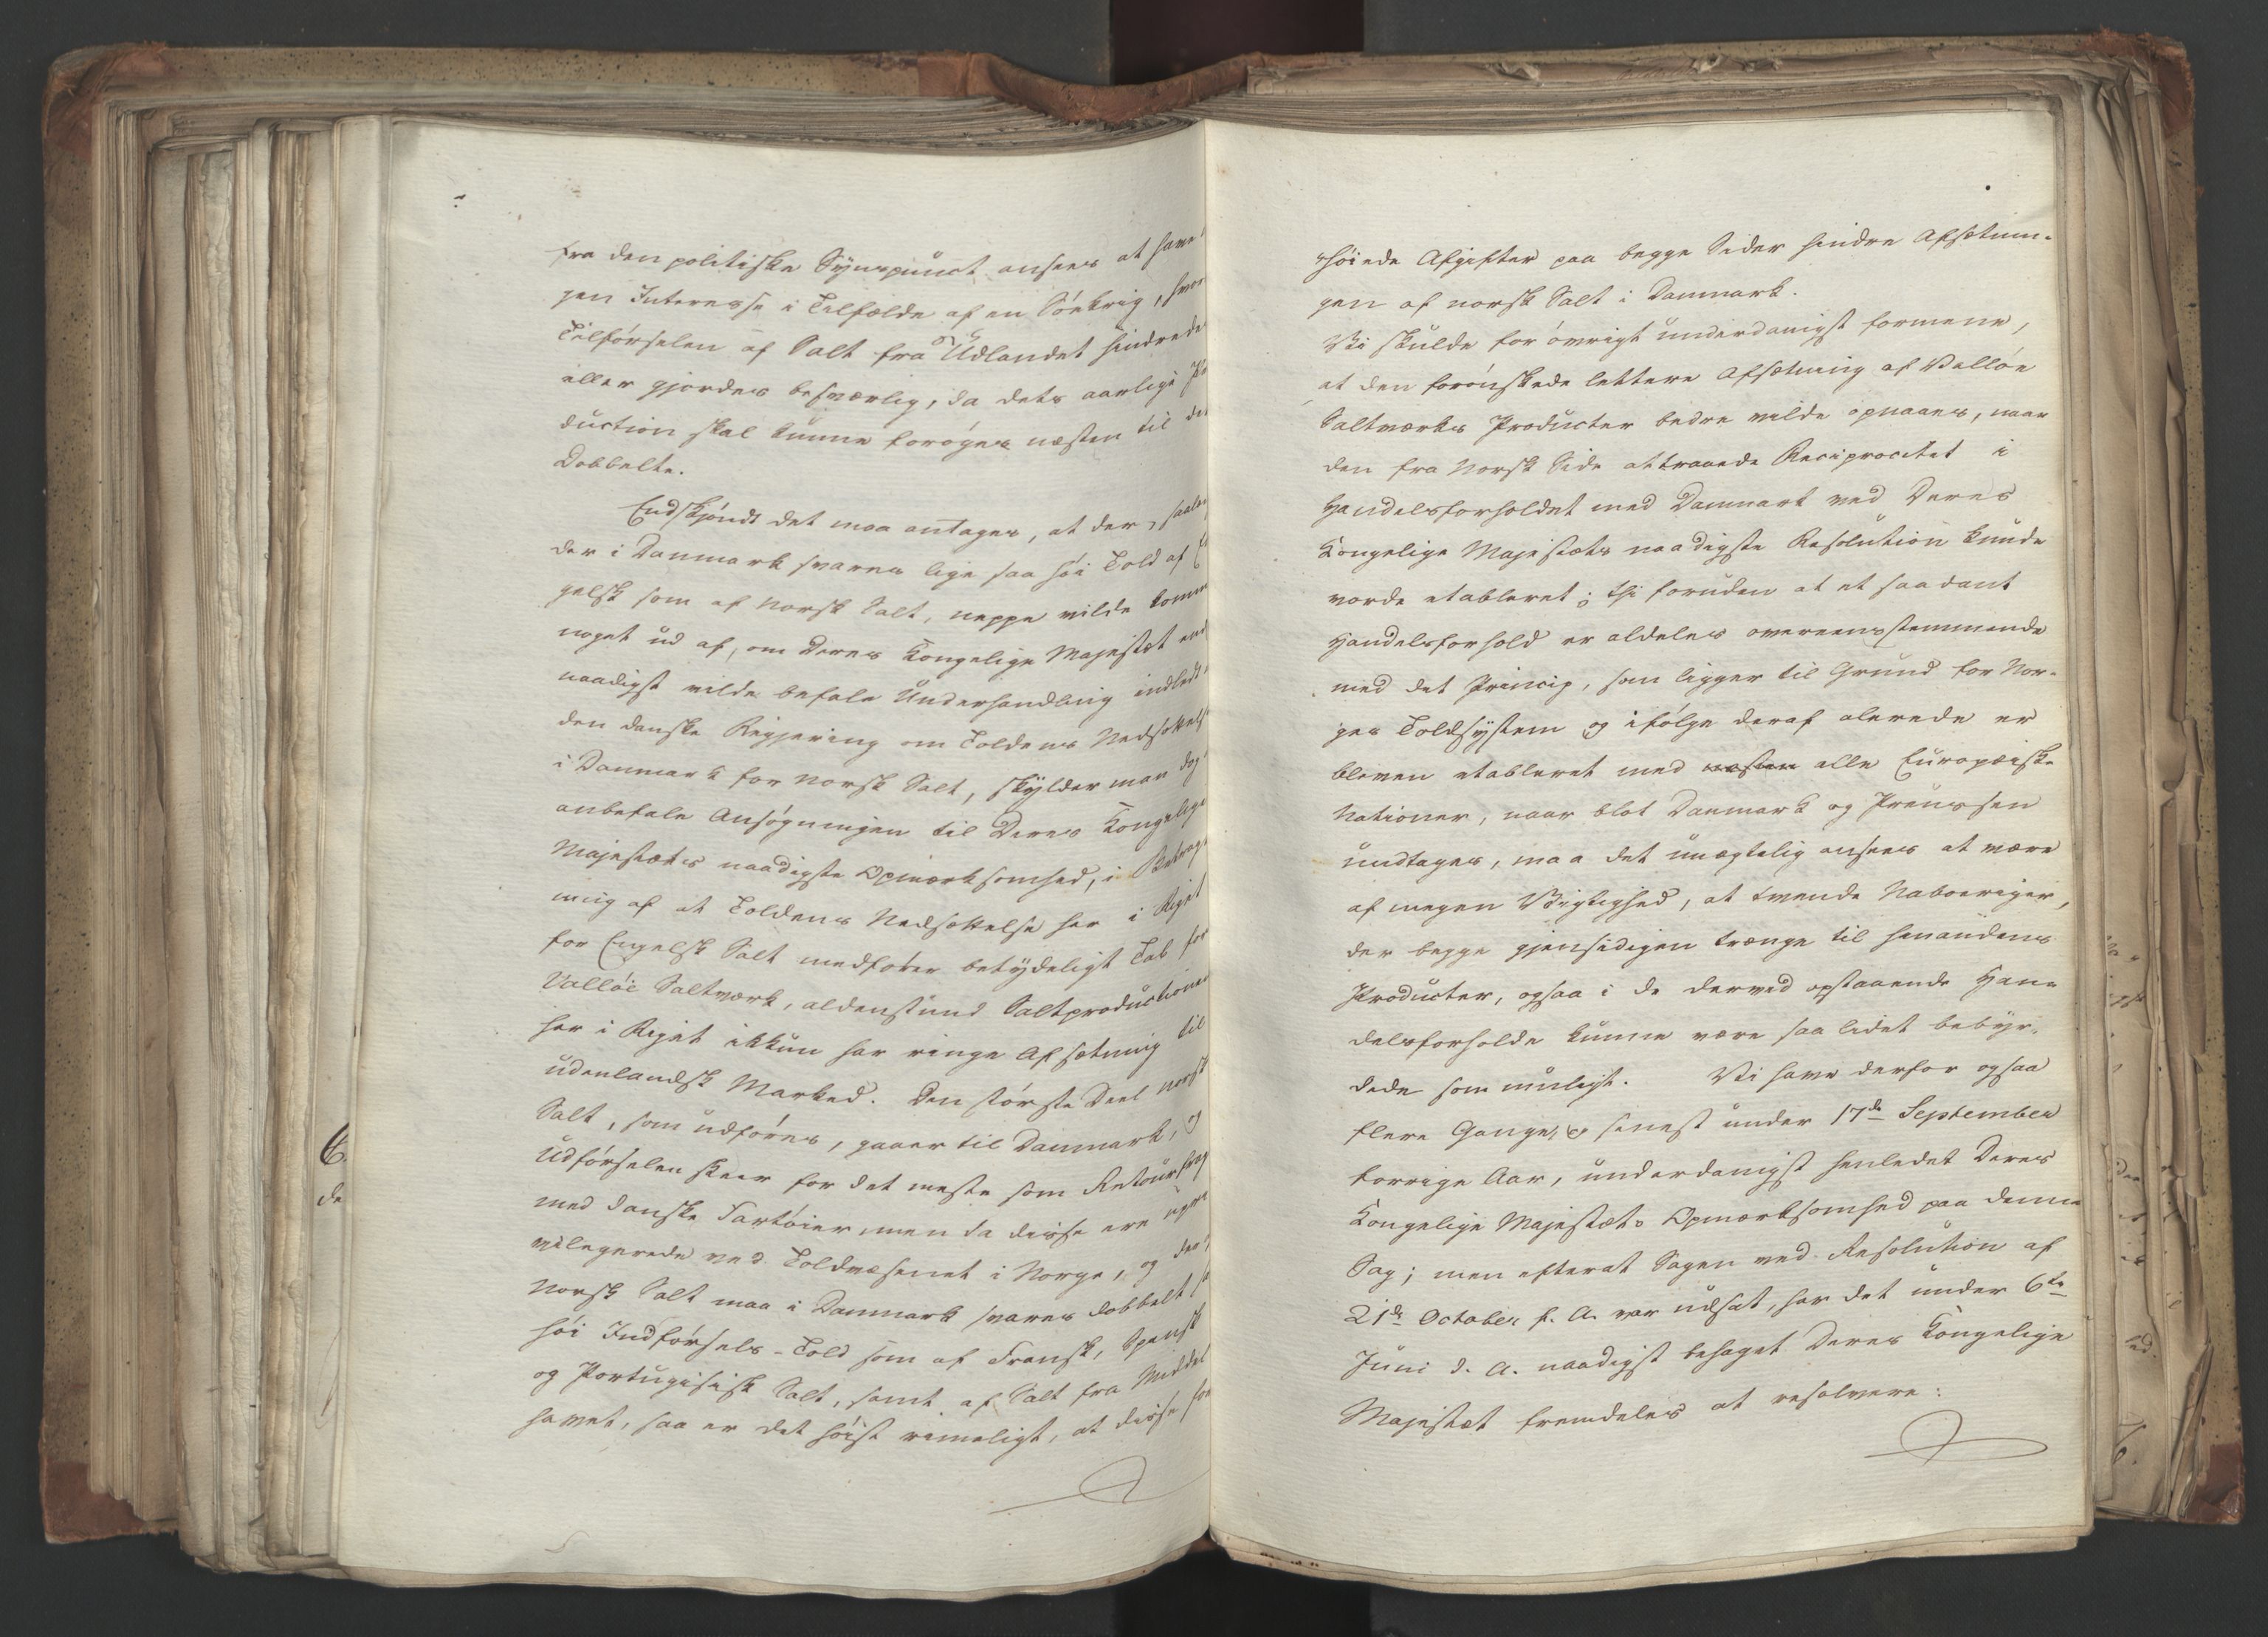 fra den politiske Synspunct ansees at have
gen Interesse i Tilfælde af en Söekrig, hvor
Tilförselen af Salt fra Udlandet hindredes
eller gjordes besværlig, da dets aarlige Pro
duction skal kunne foröges næsten til det
Dobbelte.
Endskjöndt det maa antages, at der, saale
der i Danmark svares lige saa höi Told af En
gelsk som af Norsk Salt, neppe vilde komme
noget ud af, om Deres Kongelige Majestæt end
naadigst vilde befale Underhandling indledt
den danske Regjering om Toldens Nedsættelse
i Danmark for Norsk Salt, skylder man dog
anbefale Ansögningen til Deres Kongelige
Majestæts naadigste Opmærksomhed, i Betragt
ning af at Toldens Nedsættelse her i Riget
for Engelsk Salt medförer betydeligt Tab for
Vallöe Saltværk, aldenstund Saltproductionen
her i Riget ikkun har ringe Afsætning til
udenlandsk Marked. Den störste Deel norsk
Salt, som udföres, gaaer til Danmark, og
Udförselen skeer for det meste som Retourfragt
med danske Fartöier, men da disse ere upri
vilegerede ved Toldvæsenet i Norge, og der
Norsk Salt maa i Danmark svares dobbelt sa
höi Indförsels-Told som af Fransk, Spansk
og Portugisisk Salt, samt af Salt fra Middel
havet, saa er det höist rimeligt, at disse for
höiede Afgifter paa begge Sider hindre Afsætnin-
gen af norsk Salt i Danmark.
Vi skulde for övrigt underdanigst formene,
at den forönskede lettere Afsætning af Vallöe
Saltværks Producter bedre vilde opnaaes, naar
den fra Norsk Side attraaede Reciprocitet i
Handelsforholdet med Danmark ved Deres
Kongelige Majestæts naadigste Resolution kunde
vorde etableret; thi foruden at et saadant
Handelsforhold er aldeles overeensstemmende
med det Princip, som ligger til Grund for Nor-
ges Toldsystem og ifölge deraf alerede er
bleven etableret med næsten alle Europæiske
Nationer, naar blot Danmark og Preussen
undtages, maa det unægtelig ansees at være
af megen Vigtighed, at tvende Naboeriger,
der begge gjensidigen trænge til hinandens
Producter, ogsaa i de derved opstaaende Han-
delsforholde kunne være saa lidet bebyr-
dede som muligt. Vi have derfor ogsaa
flere Gange, og senest under 17de September
forrige Aar, underdanigst henledet Deres
Kongelige Majestæts Opmærksomhed paa denne
Sag; men efterat Sagen ved Resolution af
21de October f. A. var udsat, har det under 6te
Juni d. A. naadigst behaget Deres Kongelige
Majestæt fremdeles at resolvere: